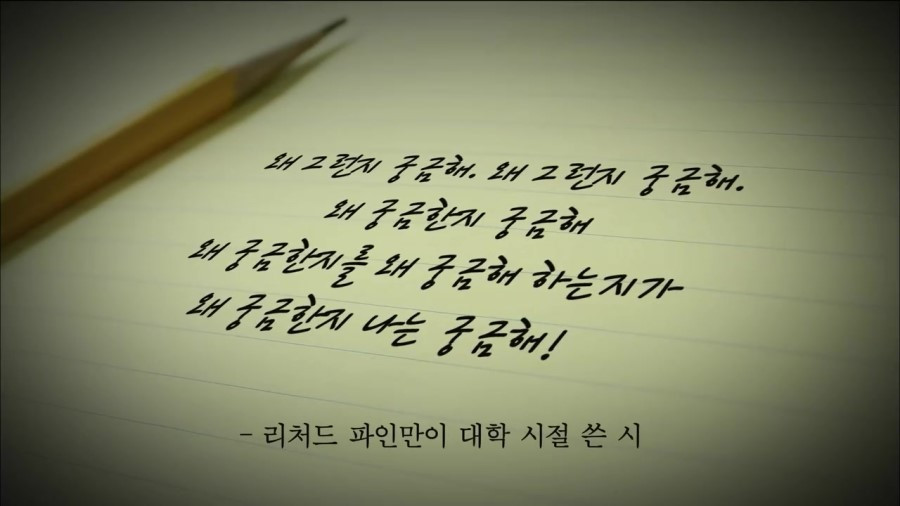 왜 그런지 궁금해. 왜 그런지 궁금해.
왜 궁금한지 궁금해
왜 궁금한지를 왜 궁금해 하는지가
왜 궁금한지 나는 궁금해!
- 리처드 파인만이 대학 시절 쓴 시